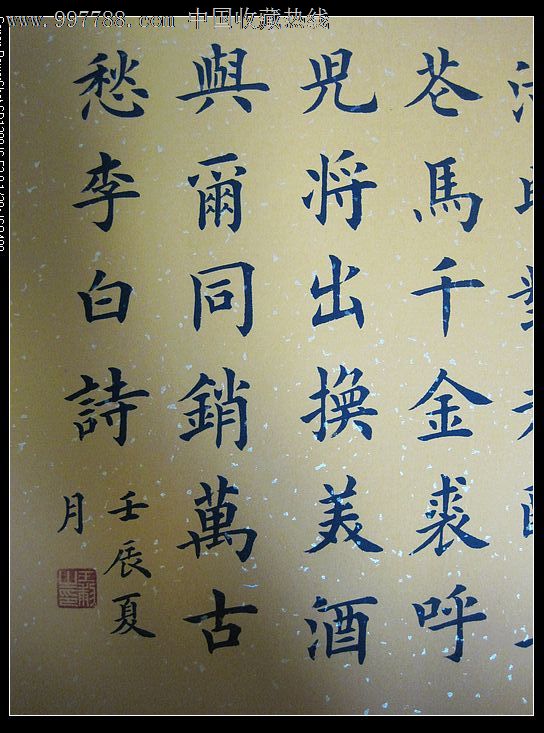 www.997788.com 中国收藏热线
花馬千金裘呼
兒将出換美酒
與爾同銷萬古
愁李白詩
壬辰夏
月